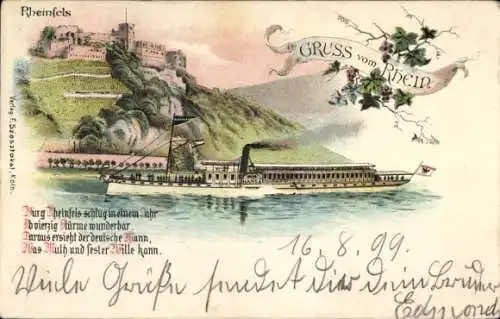 Rheinfels
GRUSS vom RHEIN.
Verlag F. Szesztokat, Köln.
HANSA
Burg Rheinfels schlug in einem Jahr
Wovierzig Stürme wunderbar,
Daraus ersieht der deutsche Mann,
Was Muth und fester Wille kann.
16. 8. 99.
Viele Grüße sendet Dir Dein Bruder
Edmond